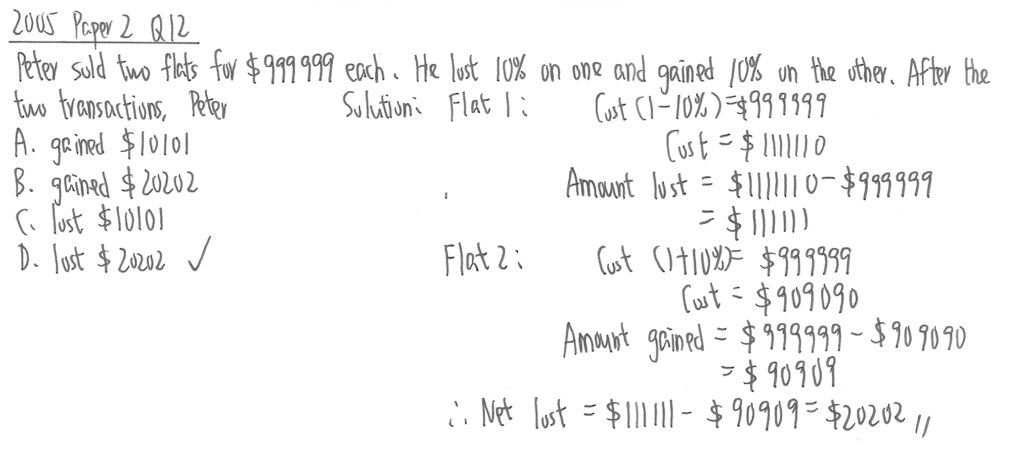 2005 Paper 2 Q12
Peter sold two flats for $999999 each. He lost 10% on one and gained 10% on the other. After the
two transactions, Peter
A. gained $10101
B. gained $20202
C. lost $10101
D. lost $20202 ✓
Solution: Flat 1: Cost (1-10%)=$999999
Cost = $1111110
Amount lost = $1111110-$999999
= $111111
Flat 2: Cost (1+10%)= $999999
Cost = $909090
Amount gained = $999999 - $909090
= $90909
∴ Net lost = $111111 - $90909 = $20202 //